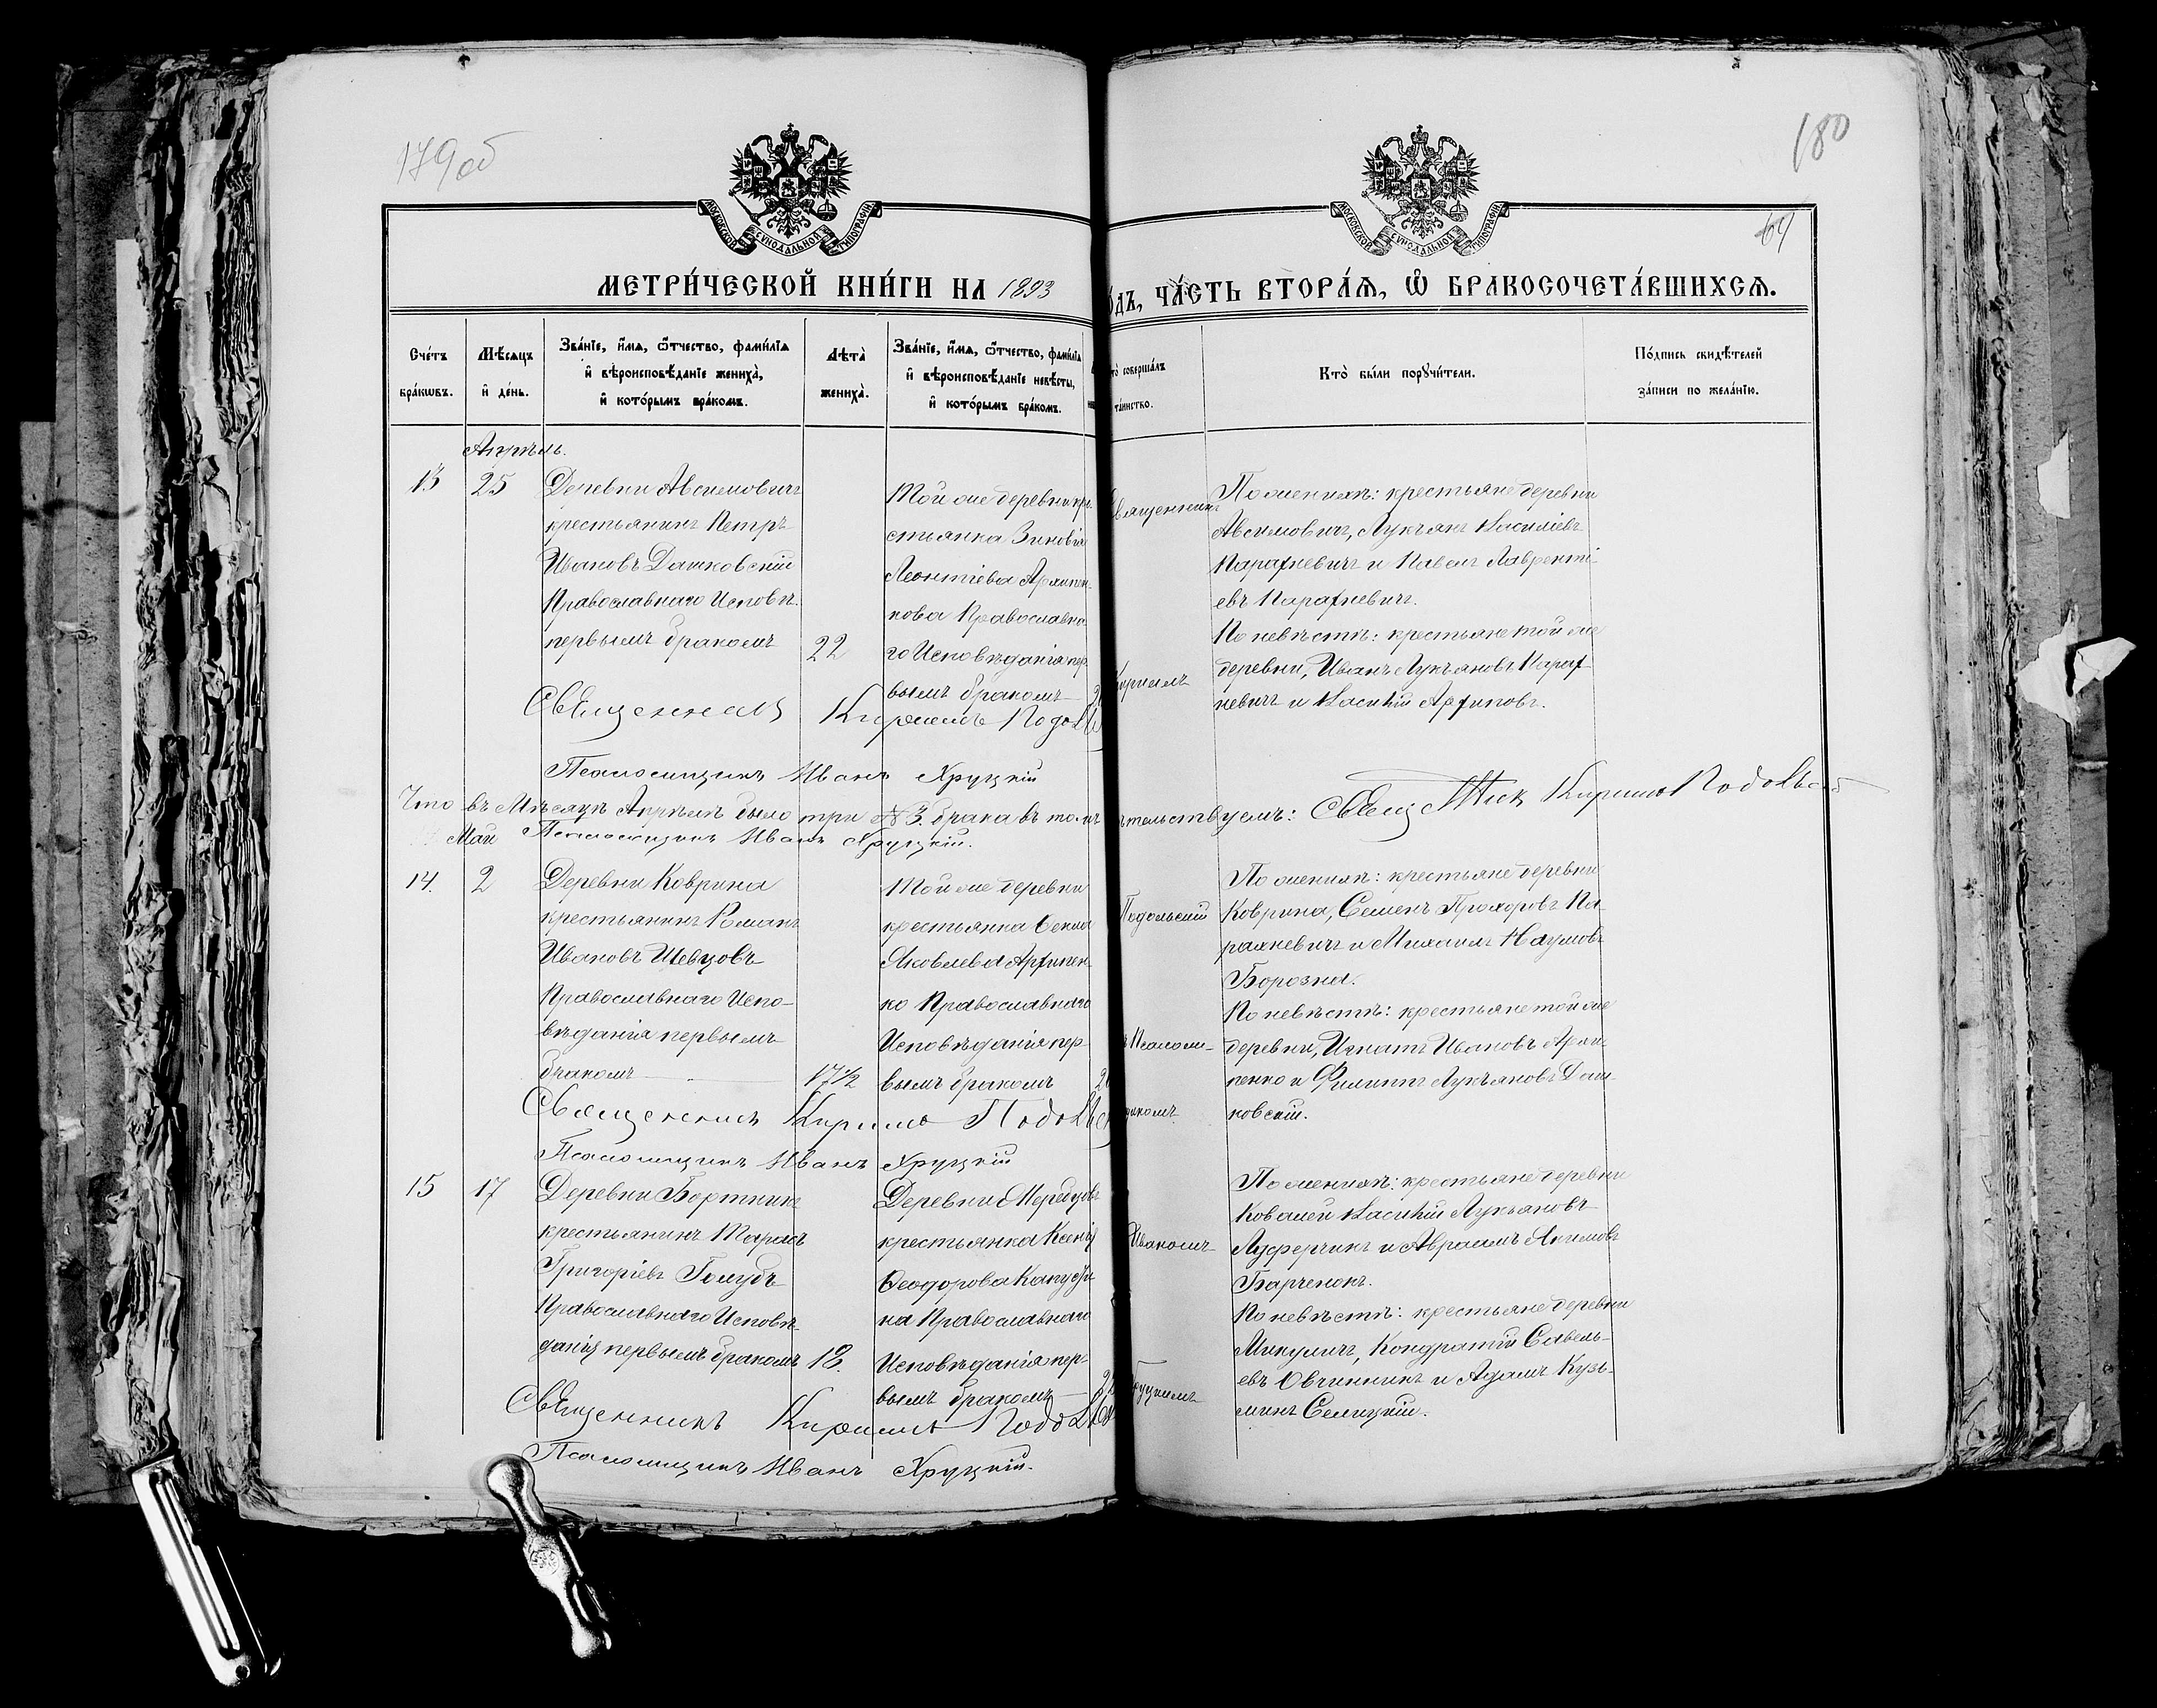 179 об
180
64
МОСКОВСКОЙ СУНОДАЛЬНОЙ ТИПОГРАФІИ
МОСКОВСКОЙ СУНОДАЛЬНОЙ ТИПОГРАФІИ
МЕТРИ́ЧЕСКОЙ КНИ́ГИ НА 1893
О́ДЪ, ЧА́СТЬ ВТОРА́Я, Ѡ БРАКОСОЧЕТА́ВШИХСЯ.
Сче́тъ
бра́кѡвъ.
Мѣ́сяцъ
и де́нь.
Зва́нїе, и́мя, ѻ́тчество, фами́лїя
и вѣроисповѣ́данїе жениха̀,
и кото́рымъ бра́комъ.
Лѣта̀
жениха̀.
Зва́нїе, и́мя, ѻ́тчество, фами́лїя
и вѣроисповѣ́данїе невѣ́сты,
и кото́рымъ бра́комъ.
то̀ соверша́лъ
та́инство.
Кто̀ бы́ли поручи́тели.
По́дпись свидѣ́телей
за́писи по жела́нїю.
Апрѣль.
13
25
Деревни Авсимовичъ
крестьянинъ Петръ
Ивановъ Дашковскій
Православнаго Исповѣ.
первымъ бракомъ
22
Той же деревни кре
стьянка Зиновія
Леонтіева Архипен
кова Православна
го Исповѣданія пер
вымъ бракомъ
Священник
Кирилъ
По женихѣ: крестьяне деревни
Авсимовичъ, Лукьянъ Василіевъ
Парахневичъ и Павелъ Лавренті-
евъ Парахневичъ.
По невѣстѣ: крестьяне той же
деревни, Иванъ Лукьяновъ Парах-
невичъ и Василій Архиповъ.
Священникъ Кириллъ Подоль
Псаломщикъ Иванъ Хруцкій
Что въ Мѣсяцѣ Апрѣлѣ было три № 3. брака въ томъ
ѣтельствуемъ: Свящ Кириллъ Подольскій
Псаломщикъ Иванъ Хруцкій.
Май
14.
2
Деревни Коврина
крестьянинъ Романъ
Ивановъ Шевцовъ
Православнаго Испо-
вѣданія первымъ
бракомъ
17 1/2
Той же деревни
крестьянка Ѳекла
Яковлева Архипен
ко Православнаго
Исповѣданія пер-
вымъ бракомъ
Подольскій
ъ Псалом-
щикомъ
По женихѣ: крестьяне деревни
Коврина, Семенъ Прохоровъ Па-
рахневичъ и Михаилъ Наумовъ
Борозна.
По невѣстѣ: крестьяне той же
деревни, Игнатъ Ивановъ Архи-
пенко и Филиппъ Лукьяновъ Даш-
ковскій.
Священникъ Кириллъ Подольск
Псаломщикъ Иванъ Хруцкій
15
17
Деревни Бортникъ
крестьянинъ Тарасъ
Григоріевъ Голубъ
Православнаго Исповѣ-
данія первымъ бракомъ
18.
крестьянка Ксенія
Ѳеодорова
на Православнаго
Исповѣданія пер-
вымъ бракомъ
Иваномъ
Хруцкимъ
По женихѣ: крестьяне деревни
Ковалей Василій Лукьяновъ
Луферчикъ и Авраамъ Якимовъ
Барченокъ.
По невѣстѣ: крестьяне деревни
Микуличъ, Кондратій Савель-
евъ Овчинникъ и Адамъ Кузь-
минъ Селицкій.
Священникъ Кириллъ Подоль
Псаломщикъ Иванъ Хруцкій.